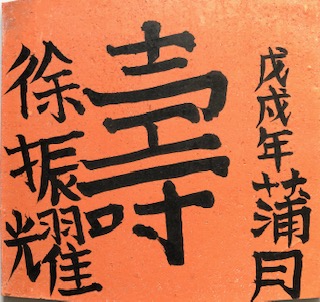 戊戌年蒲月
壽
徐振耀